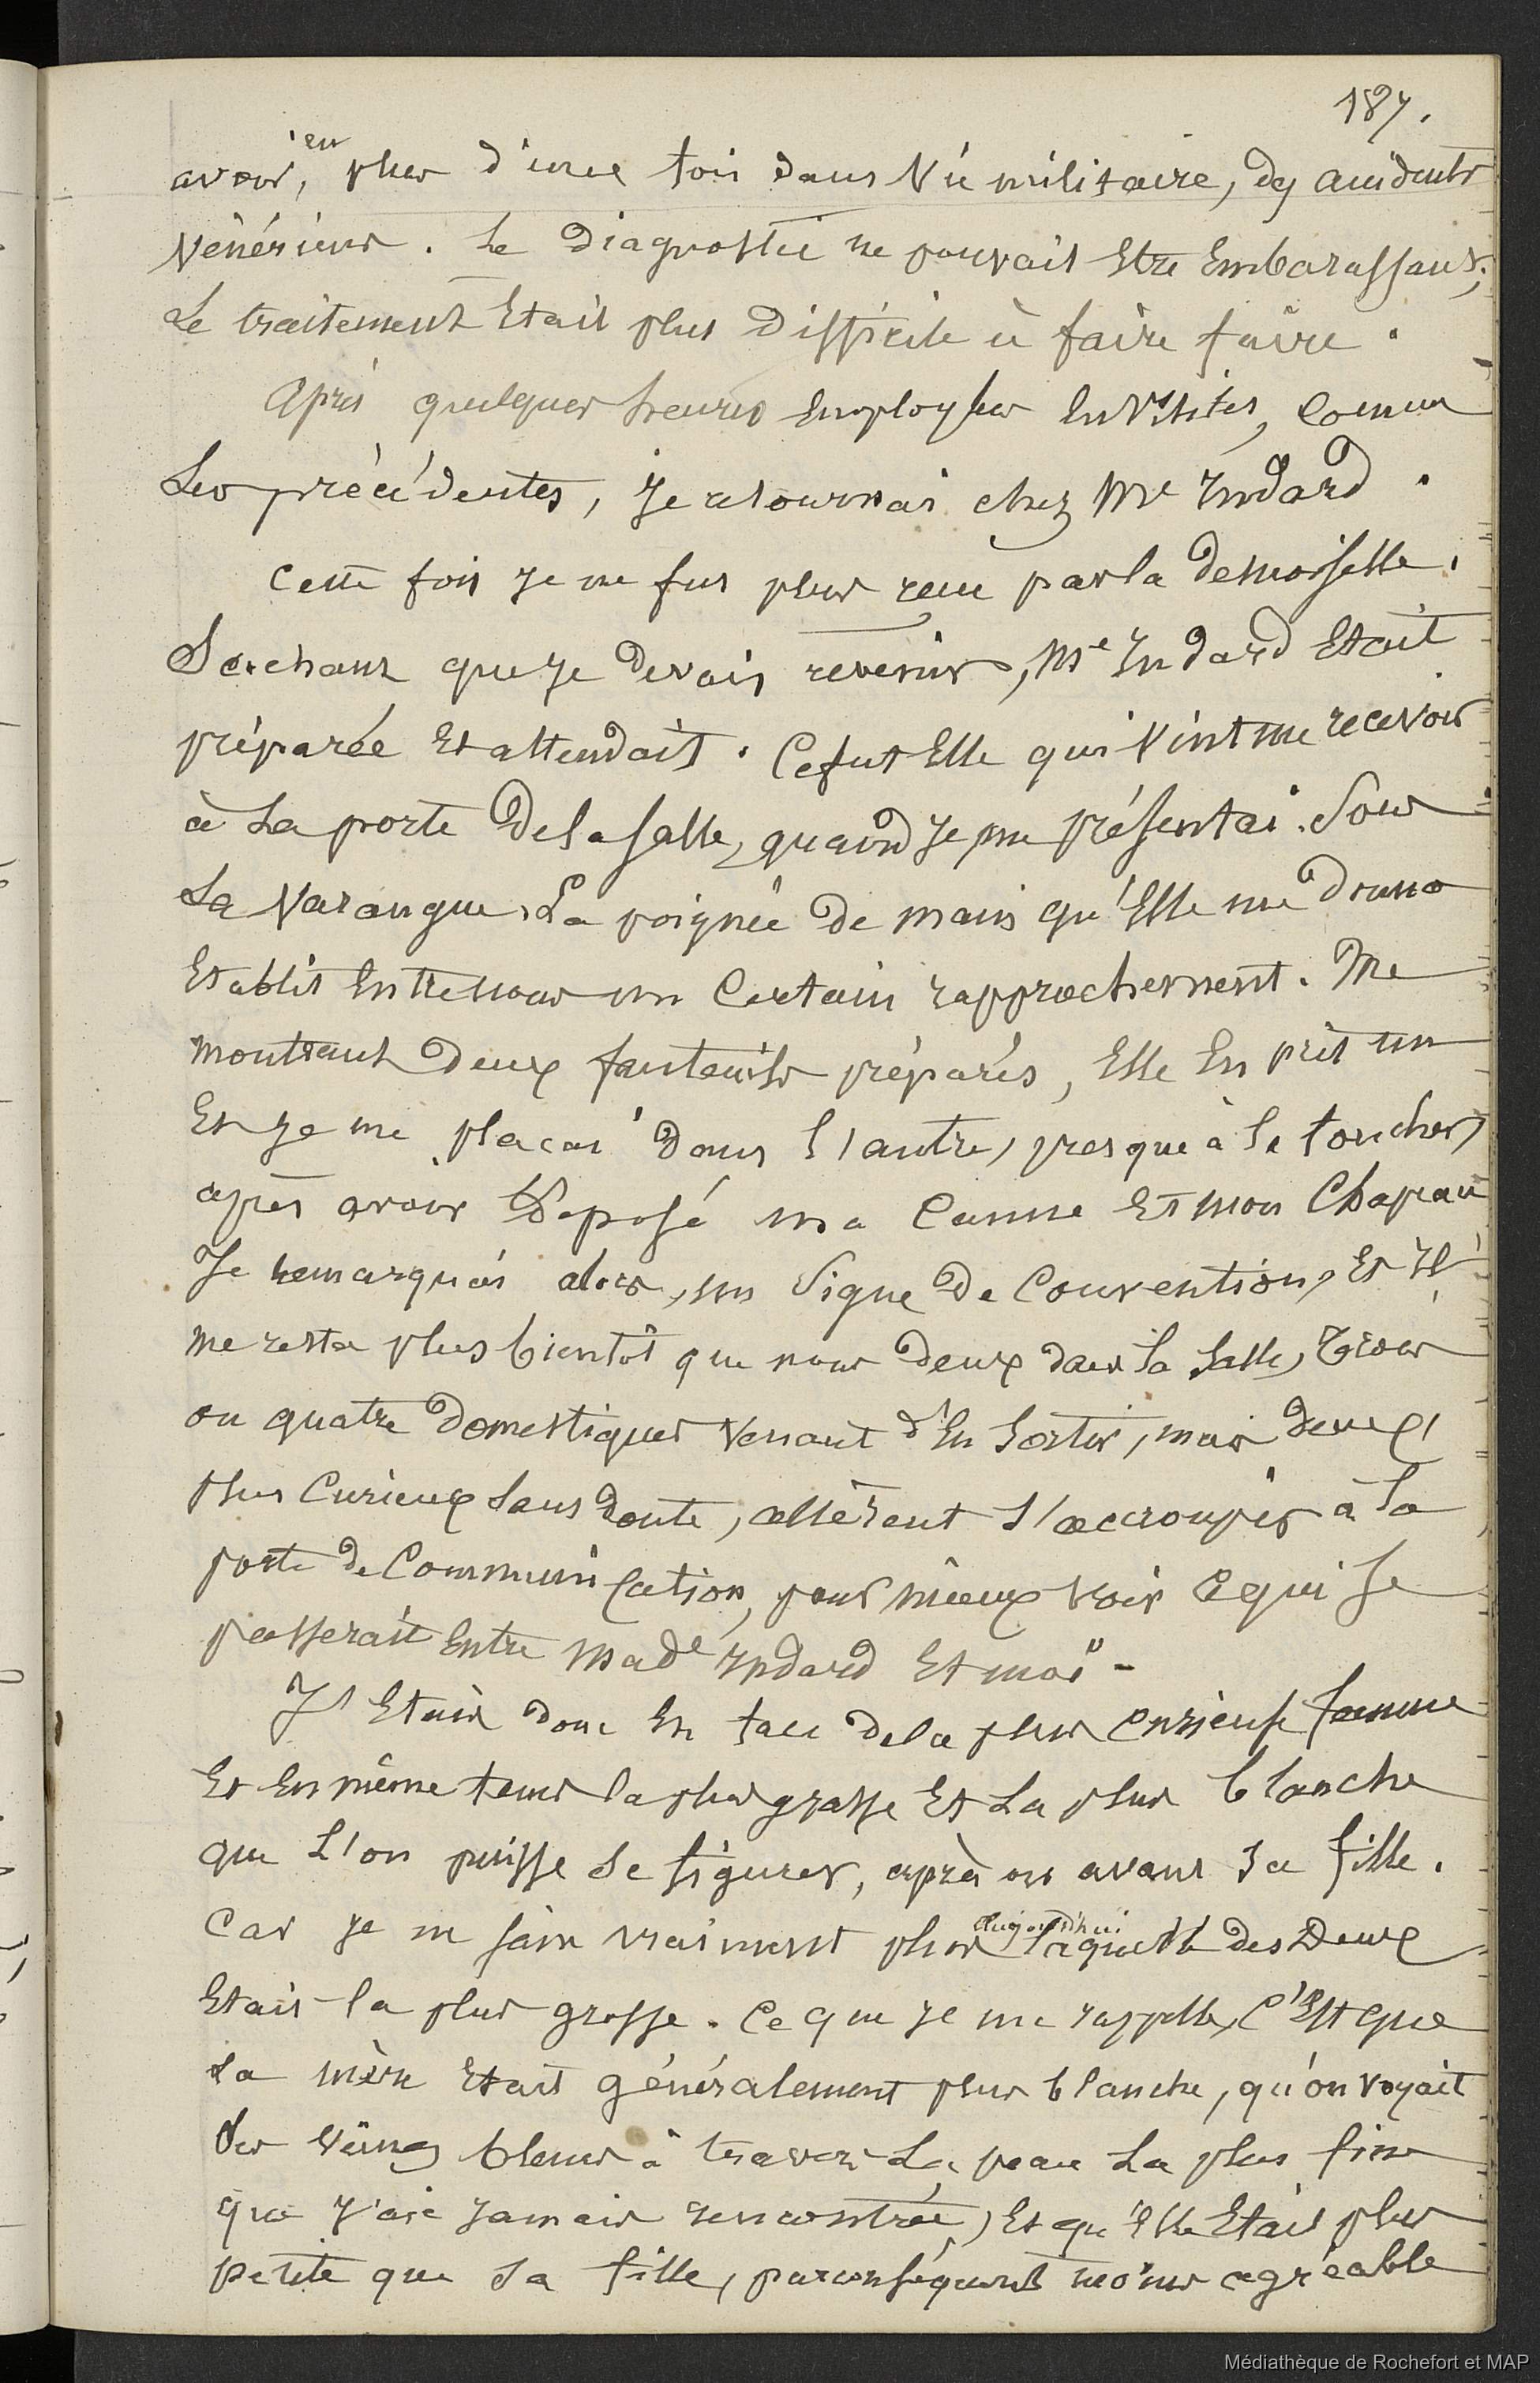 187.
avoir, eu plus d'une fois dans vie militaire, des accidents
vénériens. Le diagnostic ne pouvait être embarassant;
Le traitement etait plus difficile à faire faire.
Après quelques heures employées en visites, comme
les précédentes, je retournai chez Me Indard.
Cette fois je ne fus plus recu par la demoiselle.
Sachant que je devais revenir, Me Indard etait
préparée et attendait. Ce fut elle qui vint me recevoir
à la porte de la salle, quand je me présentai. Sous
la varangue. La poignée de main qu'elle me donna
etablit entre nous un certain rapprochement. Me
montrant deux fauteuils préparés, elle en prit un
et je me placai dans l'autre, presque à le toucher,
après avoir déposé ma canne et mon chapeau
Je remarquai alors, un signe de convention, et il
ne resta plus bientôt que nous deux dans la salle, trois
ou quatre domestiques venant d'en sortir, mais deux,
plus curieux sans doute, allèrent s'accroupir à la
porte de communication, pour mieux voir ce qui se
passerait entre Made Indard et moi -
J'etais donc en face de la plus curieuse femme
et en même tems la plus grasse et la plus blanche
que l'on puisse se figurer, après ou avant sa fille.
Car je ne sais vraiment plus aujourd'hui laquelle des deux
etait la plus grosse. Ce que je me rappelle, c'est que
la mère etait généralement plus blanche, qu'on voyait
des veines bleues à travers la peau la plus fine
que j'aie jamais rencontrée, et qu'elle etait plus
petite que sa fille, par conséquent moins agréable
Médiathèque de Rochefort et MAP